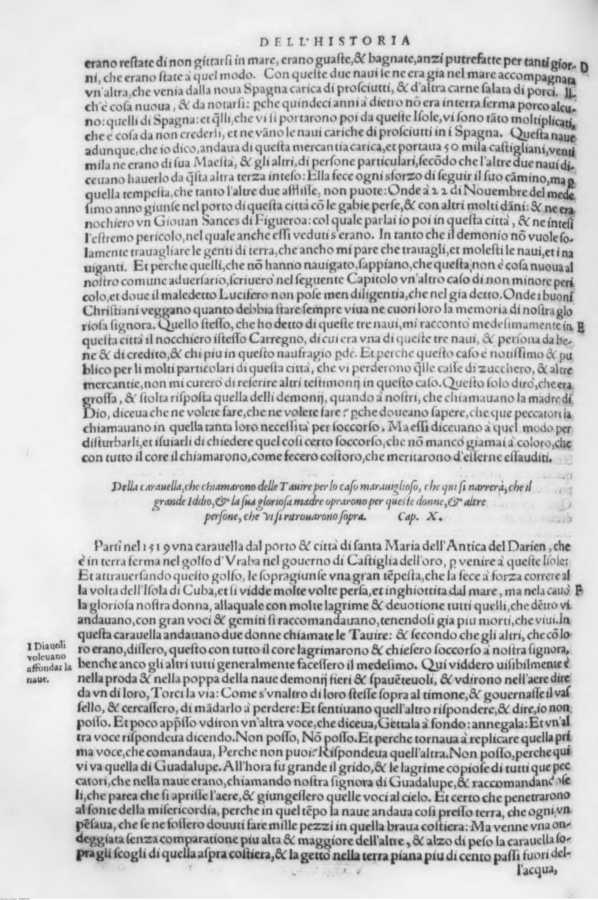 DELL'HISTORIA
erano restate di non gittarsi in mare, erano guaste,& bagnate,anzi putrefatte per tanti gior-
ni, che erano state à quel modo. Con queste due naui le ne era gia nel mare accompagnata
vn'altra,che venia dalla noua Spagna carica di prosciutti, & d'altra carne salata di porci. Il
ch'è cosa nuoua, & da notarsi: pche quindeci anni à dietro nō era in terra ferma porco alcu-
no: quelli di Spagna: et q̃lli,che vi si portarono poi da queste Isole, vi sono tāto moltiplicati,
che è cosa da non credersi, et ne vāno le naui cariche di prosciutti in i Spagna. Questa naue
adunque,che io dico,andaua di questa mercantia carica,et portaua 50 mila castigliani,venti
mila ne erano di sua Maestà, & gli altri, di persone particulari,secōdo che l'altre due naui di-
ceuano hauerlo da q̃sta altra terza inteso: Ella fece ogni sforzo di seguir il suo cāmino,ma p
quella tempesta,che tanto l'altre due afflisse, non puote: Onde à 22 di Nouembre del mede
simo anno giunse nel porto di questa città cō le gabie perse,& con altri molti dāni: & ne era
nochiero vn Giouan Sances di Figueroa: col quale parlai io poi in questa città, & ne intesi
l'estremo pericolo,nel quale anche essi veduti s'erano. In tanto che il demonio nō vuole so-
lamente trauagliare le genti di terra,che ancho mi pare che trauagli,et molesti le naui,et i na
uiganti. Et perche quelli, che nō hanno nauigato,sappiano,che questa non è cosa nuoua al
nostro comune aduersario,scriuerò nel seguente Capitolo vn'altro caso di non minore peri
colo,et doue il maledetto Lucifero non pose men diligentia,che nel gia detto. Onde i buoni
Christiani veggano quanto debbia stare sempre viua ne cuori loro la memoria di nostra glo
riosa signora. Quello stesso, che ho detto di queste tre naui,mi raccontò medesimamente in
questa città il nocchiero istesso Carregno, di cui era vna di queste tre naui, & persona da be-
ne & di credito,& chi piu in questo naufragio pde. Et perche questo caso è notissimo & pu
blico per li molti particulari di questa città, che vi perderono q̃lle casse di zucchero, & altre
mercantie,non mi curerò di referire altri testimonij in questo caso. Questo solo dirò,che era
grossa, & stolta risposta quella delli demonij, quando à nostri, che chiamauano la madre di
Dio, diceua che ne volete fare,che ne volete fare? pche doueano sapere,che que peccatori la
chiamauano in quella tanta loro necessità per soccorso. Ma essi diceuano à quel modo per
disturbarli,et isuiarli di chiedere quel cosi certo soccorso,che nō mancò giamai à coloro,che
con tutto il core il chiamano,come fecero costoro,che meritarono d'esserne essauditi.
Della carauella,che chiamarono delle Tauire per lo caso marauiglioso, che qui si narrerà,che il
grande Iddio,& la sua gloriosa madre oprarono per queste donne,& altre
persone, che vi si ritrouarono sopra. Cap. X.
Partì nel 1519 vna carauella dal porto & città di santa Maria dell'Antica del Darien, che
è in terra ferma nel golfo d'Vraba nel gouerno di Castiglia dell'oro, p venire à queste Isole:
Et attrauersando questo golfo, le sopragiunse vna gran tēpesta,che la fece à forza correre al
la volta dell'Isola di Cuba,et si vidde molte volte persa,et inghiottita dal mare, ma nella cauò
la gloriosa nostra donna, allaquale con molte lagrime & deuotione tutti quelli, che dētro vi
andauano,con gran voci & gemiti si raccomandauano,tenendosi gia piu morti,che viui.In
questa carauella andauano due donne chiamate le Tauire: & secondo che gli altri, che cō lo
ro erano,dissero, questo con tutto il core lagrimarono & chiesero soccorso à nostra signora,
benche anco gli altri tutti generalmente facessero il medesimo. Qui viddero uisibilmente è
nella proda & nella poppa della naue demonij fieri & spauēteuoli, & vdirono nell'aere dire
da vn di loro, Torci la via: Come s'vnaltro di loro stesse sopra al timone, & gouernasse il vas
sello, & cercassero, di mādarlo à perdere: Et sentiuano quell'altro rispondere,& dire,io non
posso. Et poco app̃sso vdiron vn'altra voce,che diceua,Gettala à fondo: annegala: Et vn'al
tra voce rispondeua dicendo. Non posso, Nō posso.Et perche tornaua à replicare quella pri
ma voce,che comandaua, Perche non puoi? Rispondeua quell'altra.Non posso,perche qui
vi va quella di Guadalupe. All'hora fu grande il grido,& le lagrime copiose di tutti que pec
catori,che nella naue erano,chiamando nostra signora di Guadalupe,& raccomandandose
li,che parea che si aprisse l'aere,& giungessero quelle voci al cielo. Et certo che penetrarono
al fonte della misericordia, perche in quel tēpo la naue andaua cosi presso terra, che ogni vn
pēsaua, che se ne fossero douuti fare mille pezzi in quella braua costiera: Ma venne vna on-
deggiata senza comparatione piu alta & maggiore dell'altre, & alzò di peso la carauella so-
pra gli scogli di quella aspra costiera,& la gettò nella terra piana piu di cento passi fuori del-
l'acqua,
D
E
F
I Diauoli
voleuano
affondar la
naue.